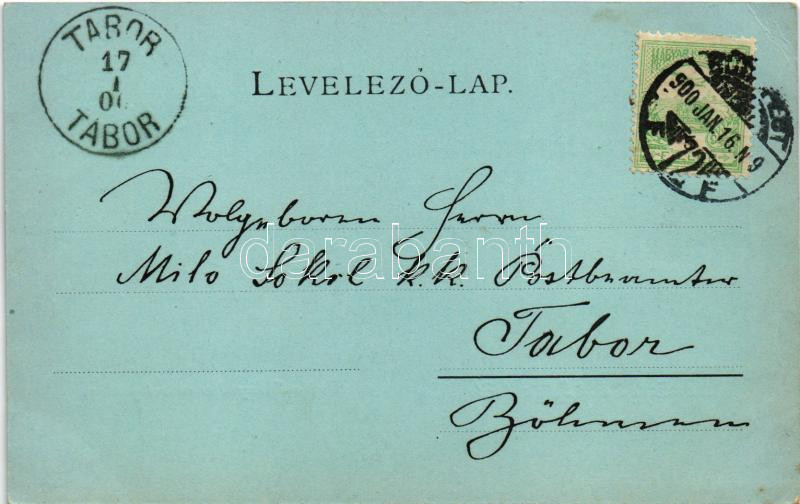 TABOR
17
1
TÁBOR
LEVELEZŐ-LAP.
MAGYAR
900 JAN. 16. N 9
Wolgeboren Herrn
Milo Sokol k. k. Postbeamter
Tabor
Böhmen
darabanth